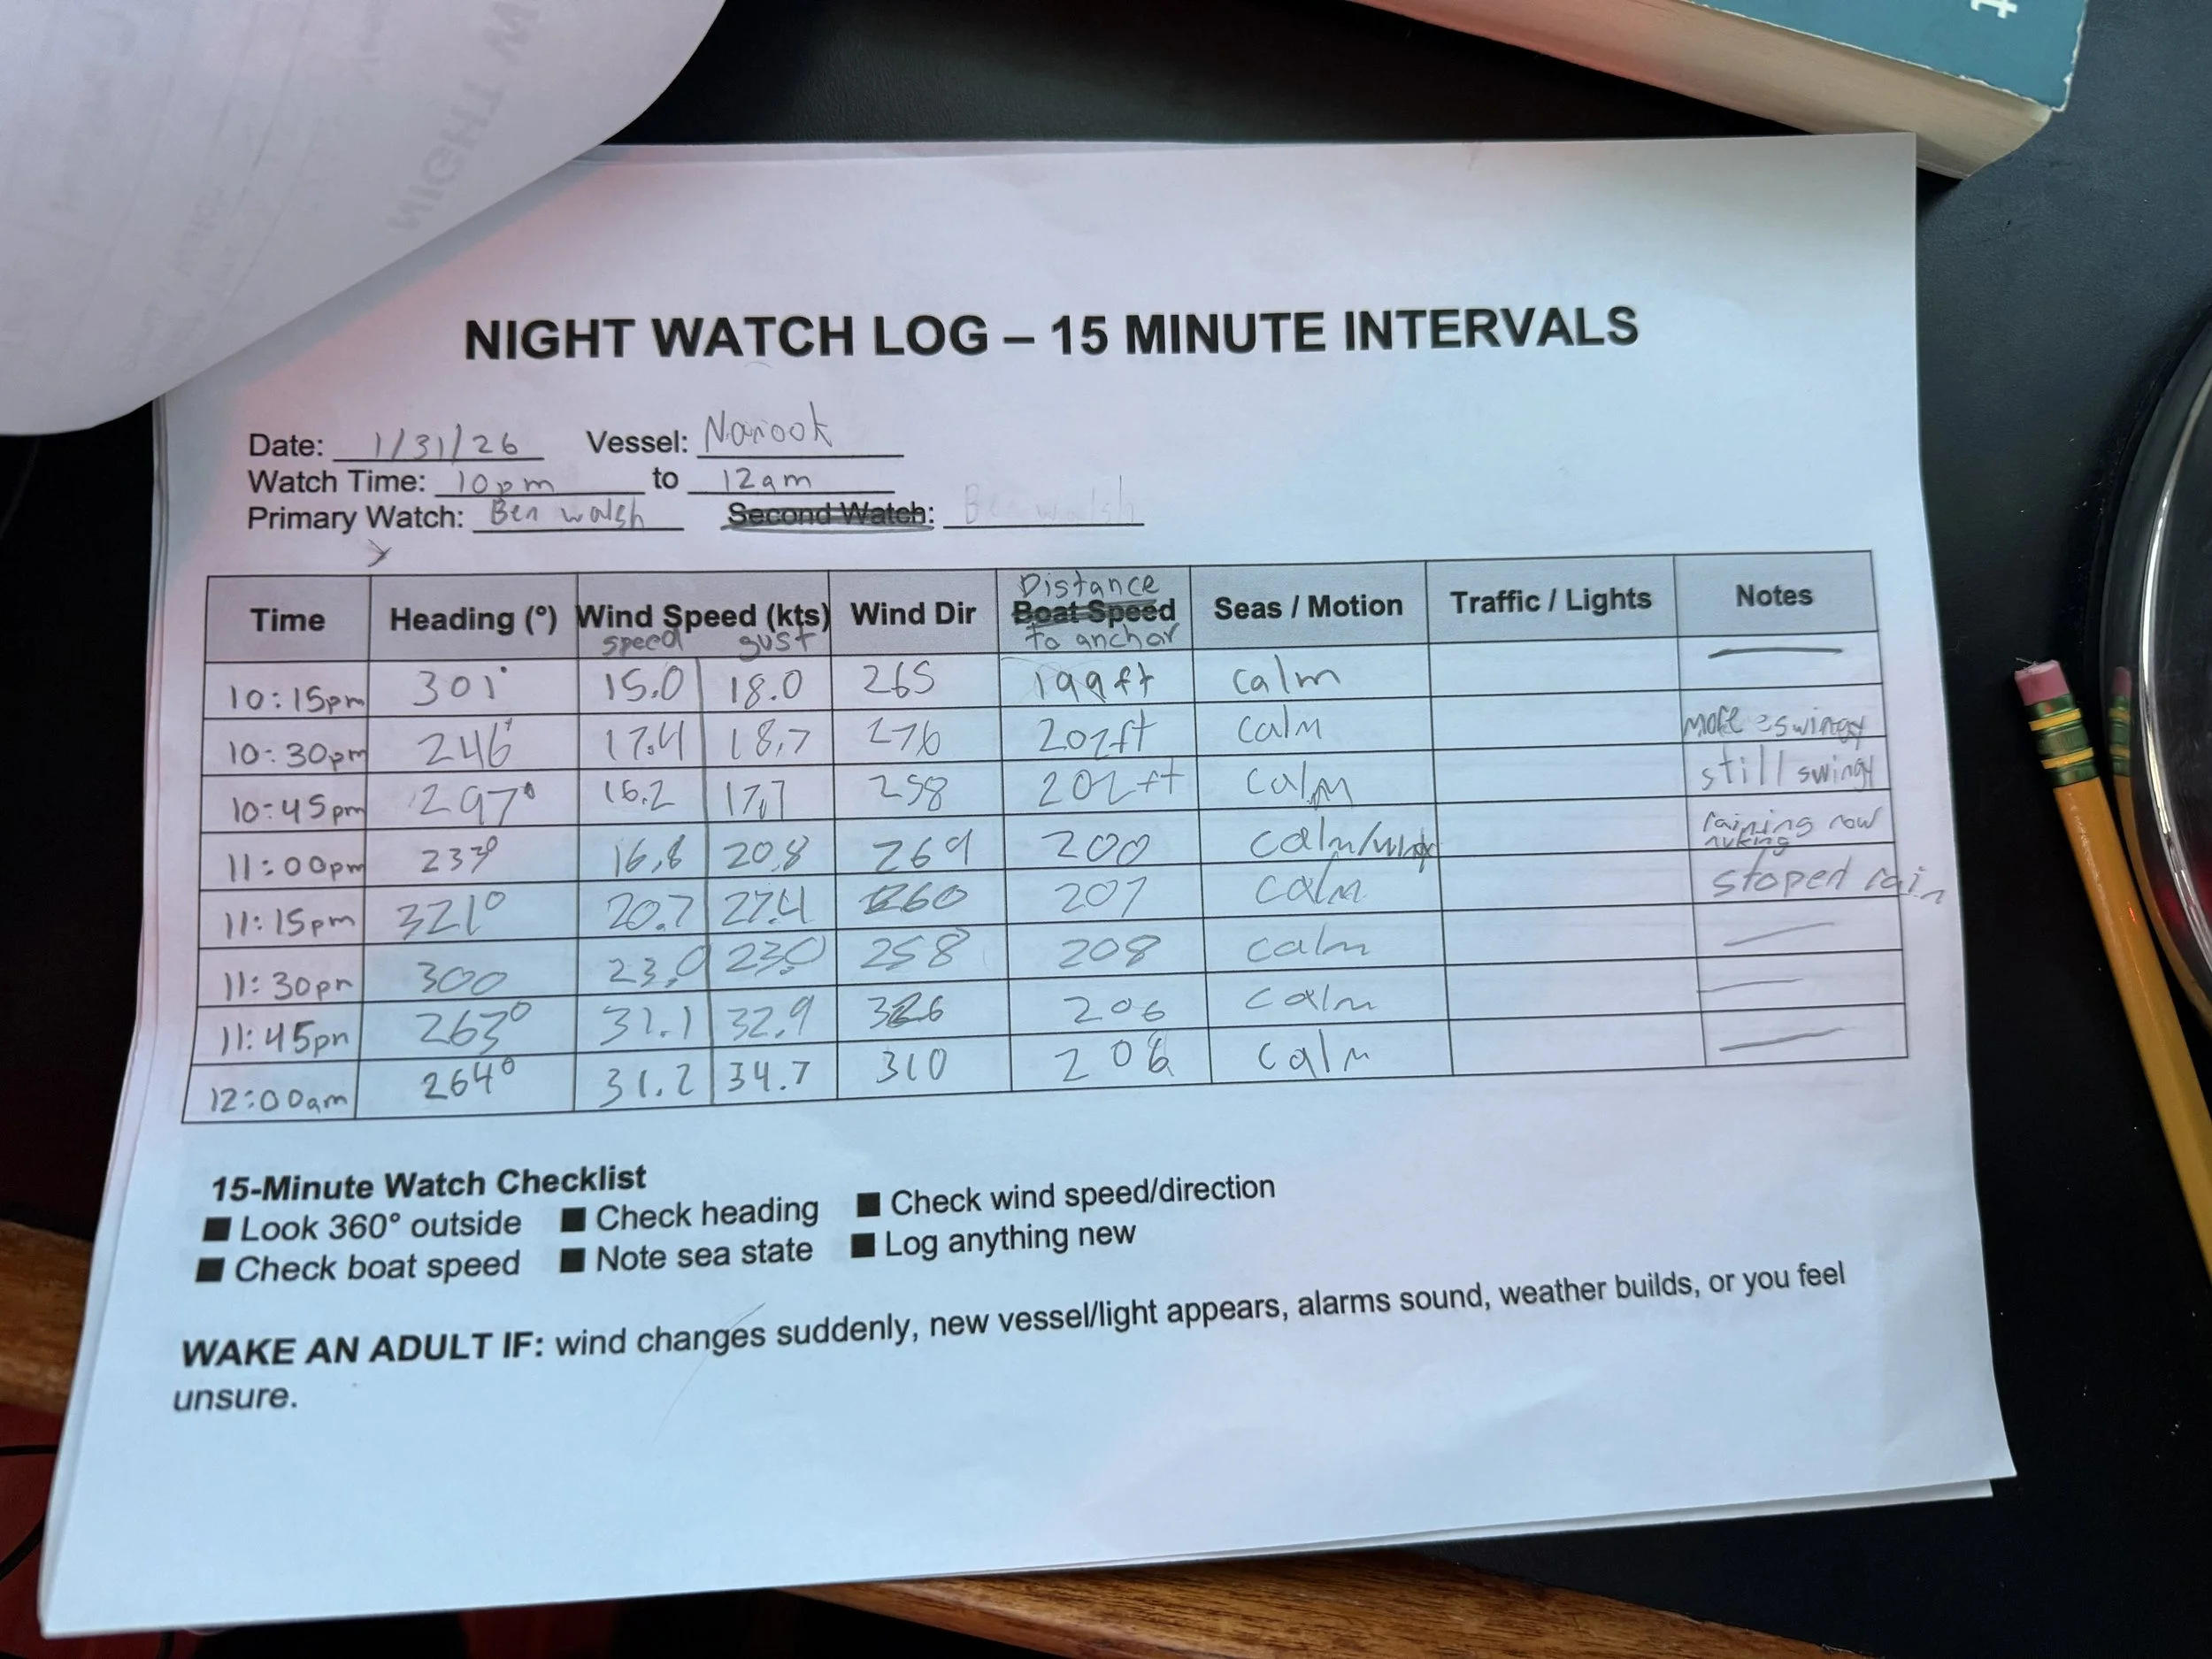 t
NIGHT W
NIGHT WATCH LOG – 15 MINUTE INTERVALS
Date: 1/31/26 Vessel: Nanook
Watch Time: 10pm to 12am
Primary Watch: Ben walsh Second Watch: Ben walsh
Time Heading (°) Wind Speed (kts) speed gust Wind Dir Distance Boat Speed to anchor Seas / Motion Traffic / Lights Notes
10:15pm 301° 15.0 18.0 265 199ft calm —
10:30pm 246° 17.4 18.7 276 202ft calm more swingy
10:45pm 297° 16.2 17.7 258 202ft calm still swingy
11:00pm 233° 16.8 20.8 269 200 calm/ raining now nuking
11:15pm 321° 20.7 27.4 260 207 calm stoped rain
11:30pm 300 23.0 23.0 258 208 calm —
11:45pm 263° 31.1 32.9 326 206 calm —
12:00am 264° 31.2 34.7 310 206 calm —
15-Minute Watch Checklist
■ Look 360° outside ■ Check heading ■ Check wind speed/direction
■ Check boat speed ■ Note sea state ■ Log anything new
WAKE AN ADULT IF: wind changes suddenly, new vessel/light appears, alarms sound, weather builds, or you feel
unsure.